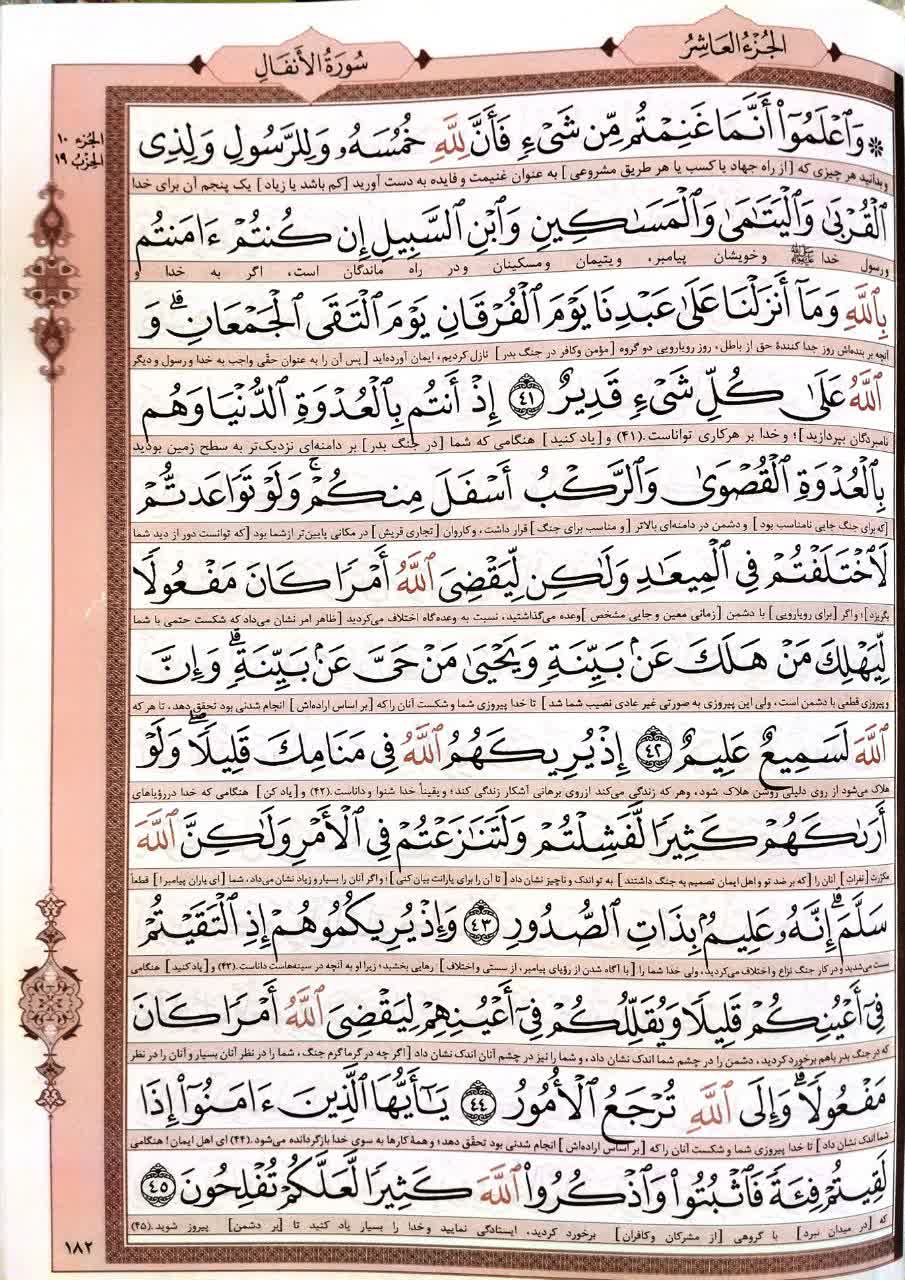 الجُزءُ العَاشِرُ
سُورَةُ الأَنفَالِ
الجزء ١٠
الحزب ١٩
۞ وَٱعۡلَمُوٓاْ أَنَّمَا غَنِمۡتُم مِّن شَيۡءٖ فَأَنَّ لِلَّهِ خُمُسَهُۥ وَلِلرَّسُولِ وَلِذِي
وبدانید هر چیزی که [از راه جهاد یا کسب یا هر طریق مشروعی] به عنوان غنیمت و فایده به دست آورید [کم باشد یا زیاد] یک پنجم آن برای خدا
ٱلۡقُرۡبَىٰ وَٱلۡيَتَٰمَىٰ وَٱلۡمَسَٰكِينِ وَٱبۡنِ ٱلسَّبِيلِ إِن كُنتُمۡ ءَامَنتُم
ورسول خدا ﷺ وخویشان پیامبر، ویتیمان ومسکینان ودر راه ماندگان است، اگر به خدا و
بِٱللَّهِ وَمَآ أَنزَلۡنَا عَلَىٰ عَبۡدِنَا يَوۡمَ ٱلۡفُرۡقَانِ يَوۡمَ ٱلۡتَقَى ٱلۡجَمۡعَانِۗ وَ
آنچه بر بنده‌اش روز جدا کنندهٔ حق از باطل، روز رویارویی دو گروه [مؤمن وکافر در جنگ بدر] نازل کردیم، ایمان آورده‌اید [پس آن را به عنوان حقّی واجب به خدا و رسول و دیگر
ٱللَّهُ عَلَىٰ كُلِّ شَيۡءٖ قَدِيرٌ ٤١ إِذۡ أَنتُم بِٱلۡعُدۡوَةِ ٱلدُّنۡيَا وَهُم
نامبردگان بپردازید]؛ و خدا بر هرکاری تواناست.(۴۱) و [یاد کنید] هنگامی که شما [در جنگ بدر] بر دامنه‌ای نزدیک‌تر به سطح زمین بودید
بِٱلۡعُدۡوَةِ ٱلۡقُصۡوَىٰ وَٱلرَّكۡبُ أَسۡفَلَ مِنكُمۡۚ وَلَوۡ تَوَاعَدتُّمۡ
[که برای جنگ جایی نامناسب بود] و دشمن در دامنه‌ای بالاتر [و مناسب برای جنگ] قرار داشت، وکاروان [تجاری قریش] در مکانی پایین‌تر از شما بود [که توانست دور از دید شما
لَٱخۡتَلَفۡتُمۡ فِي ٱلۡمِيعَٰدِ وَلَٰكِن لِّيَقۡضِيَ ٱللَّهُ أَمۡرٗا كَانَ مَفۡعُولٗا
بگریزد]؛ و اگر [برای رویارویی] با دشمن [زمانی معین و جایی مشخص] وعده می‌گذاشتید، نسبت به وعده‌گاه اختلاف می‌کردید [ظاهر امر نشان می‌داد که شکست حتمی با شما
لِّيَهۡلِكَ مَنۡ هَلَكَ عَنۢ بَيِّنَةٖ وَيَحۡيَىٰ مَنۡ حَيَّ عَنۢ بَيِّنَةٖۗ وَإِنَّ
و پیروزی قطعی با دشمن است، ولی این پیروزی به صورتی غیر عادی نصیب شما شد] تا خدا پیروزی شما و شکست آنان را که [بر اساس اراده‌اش] انجام شدنی بود تحقق دهد، تا هر که
ٱللَّهَ لَسَمِيعٌ عَلِيمٌ ٤٢ إِذۡ يُرِيكَهُمُ ٱللَّهُ فِي مَنَامِكَ قَلِيلٗاۖ وَلَوۡ
هلاک می‌شود از روی دلیلی روشن هلاک شود، وهر که زندگی می‌کند از روی برهانی آشکار زندگی کند؛ و یقیناً خدا شنوا و داناست.(۴۲) و [یاد کن] هنگامی که خدا در رؤیاهای
أَرَىٰكَهُمۡ كَثِيرٗا لَّفَشِلۡتُمۡ وَلَتَنَٰزَعۡتُمۡ فِي ٱلۡأَمۡرِ وَلَٰكِنَّ ٱللَّهَ
مکرّرت [نفرات] آنان را [که بر ضد تو و اهل ایمان تصمیم به جنگ داشتند] به تو اندک و ناچیز نشان داد [تا آن را برای یارانت بیان کنی]؛ و اگر آنان را بسیار و زیاد نشان می‌داد، شما [ای یاران پیامبر!] قطعاً
سَلَّمَۚ إِنَّهُۥ عَلِيمُۢ بِذَاتِ ٱلصُّدُورِ ٤٣ وَإِذۡ يُرِيكُمُوهُمۡ إِذِ ٱلۡتَقَيۡتُمۡ
سست می‌شدید و در کار جنگ نزاع و اختلاف می‌کردید، ولی خدا شما را [با آگاه شدن از رؤیای پیامبر، از سستی و اختلاف] رهایی بخشید؛ زیرا او به آنچه در سینه‌هاست داناست.(۴۳) و [یاد کنید] هنگامی
فِيٓ أَعۡيُنِكُمۡ قَلِيلٗا وَيُقَلِّلُكُمۡ فِيٓ أَعۡيُنِهِمۡ لِيَقۡضِيَ ٱللَّهُ أَمۡرٗا كَانَ
که در جنگ بدر باهم برخورد کردید، دشمن را در چشم شما اندک نشان داد، و شما را نیز در چشم آنان اندک نشان داد [اگر چه در گرما گرم جنگ، شما را در نظر آنان بسیار و آنان را در نظر
مَفۡعُولٗاۗ وَإِلَى ٱللَّهِ تُرۡجَعُ ٱلۡأُمُورُ ٤٤ يَٰٓأَيُّهَا ٱلَّذِينَ ءَامَنُوٓاْ إِذَا
شما اندک نشان داد] تا خدا پیروزی شما و شکست آنان را که [بر اساس اراده‌اش] انجام شدنی بود تحقّق دهد؛ و همهٔ کارها به سوی خدا بازگردانده می‌شود.(۴۴) ای اهل ایمان! هنگامی
لَقِيتُمۡ فِئَةٗ فَٱثۡبُتُواْ وَٱذۡكُرُواْ ٱللَّهَ كَثِيرٗا لَّعَلَّكُمۡ تُفۡلِحُونَ ٤٥
که [در میدان نبرد] با گروهی [از مشرکان وکافران] برخورد کردید، ایستادگی نمایید وخدا را بسیار یاد کنید تا [بر دشمن] پیروز شوید.(۴۵)
١٨٢